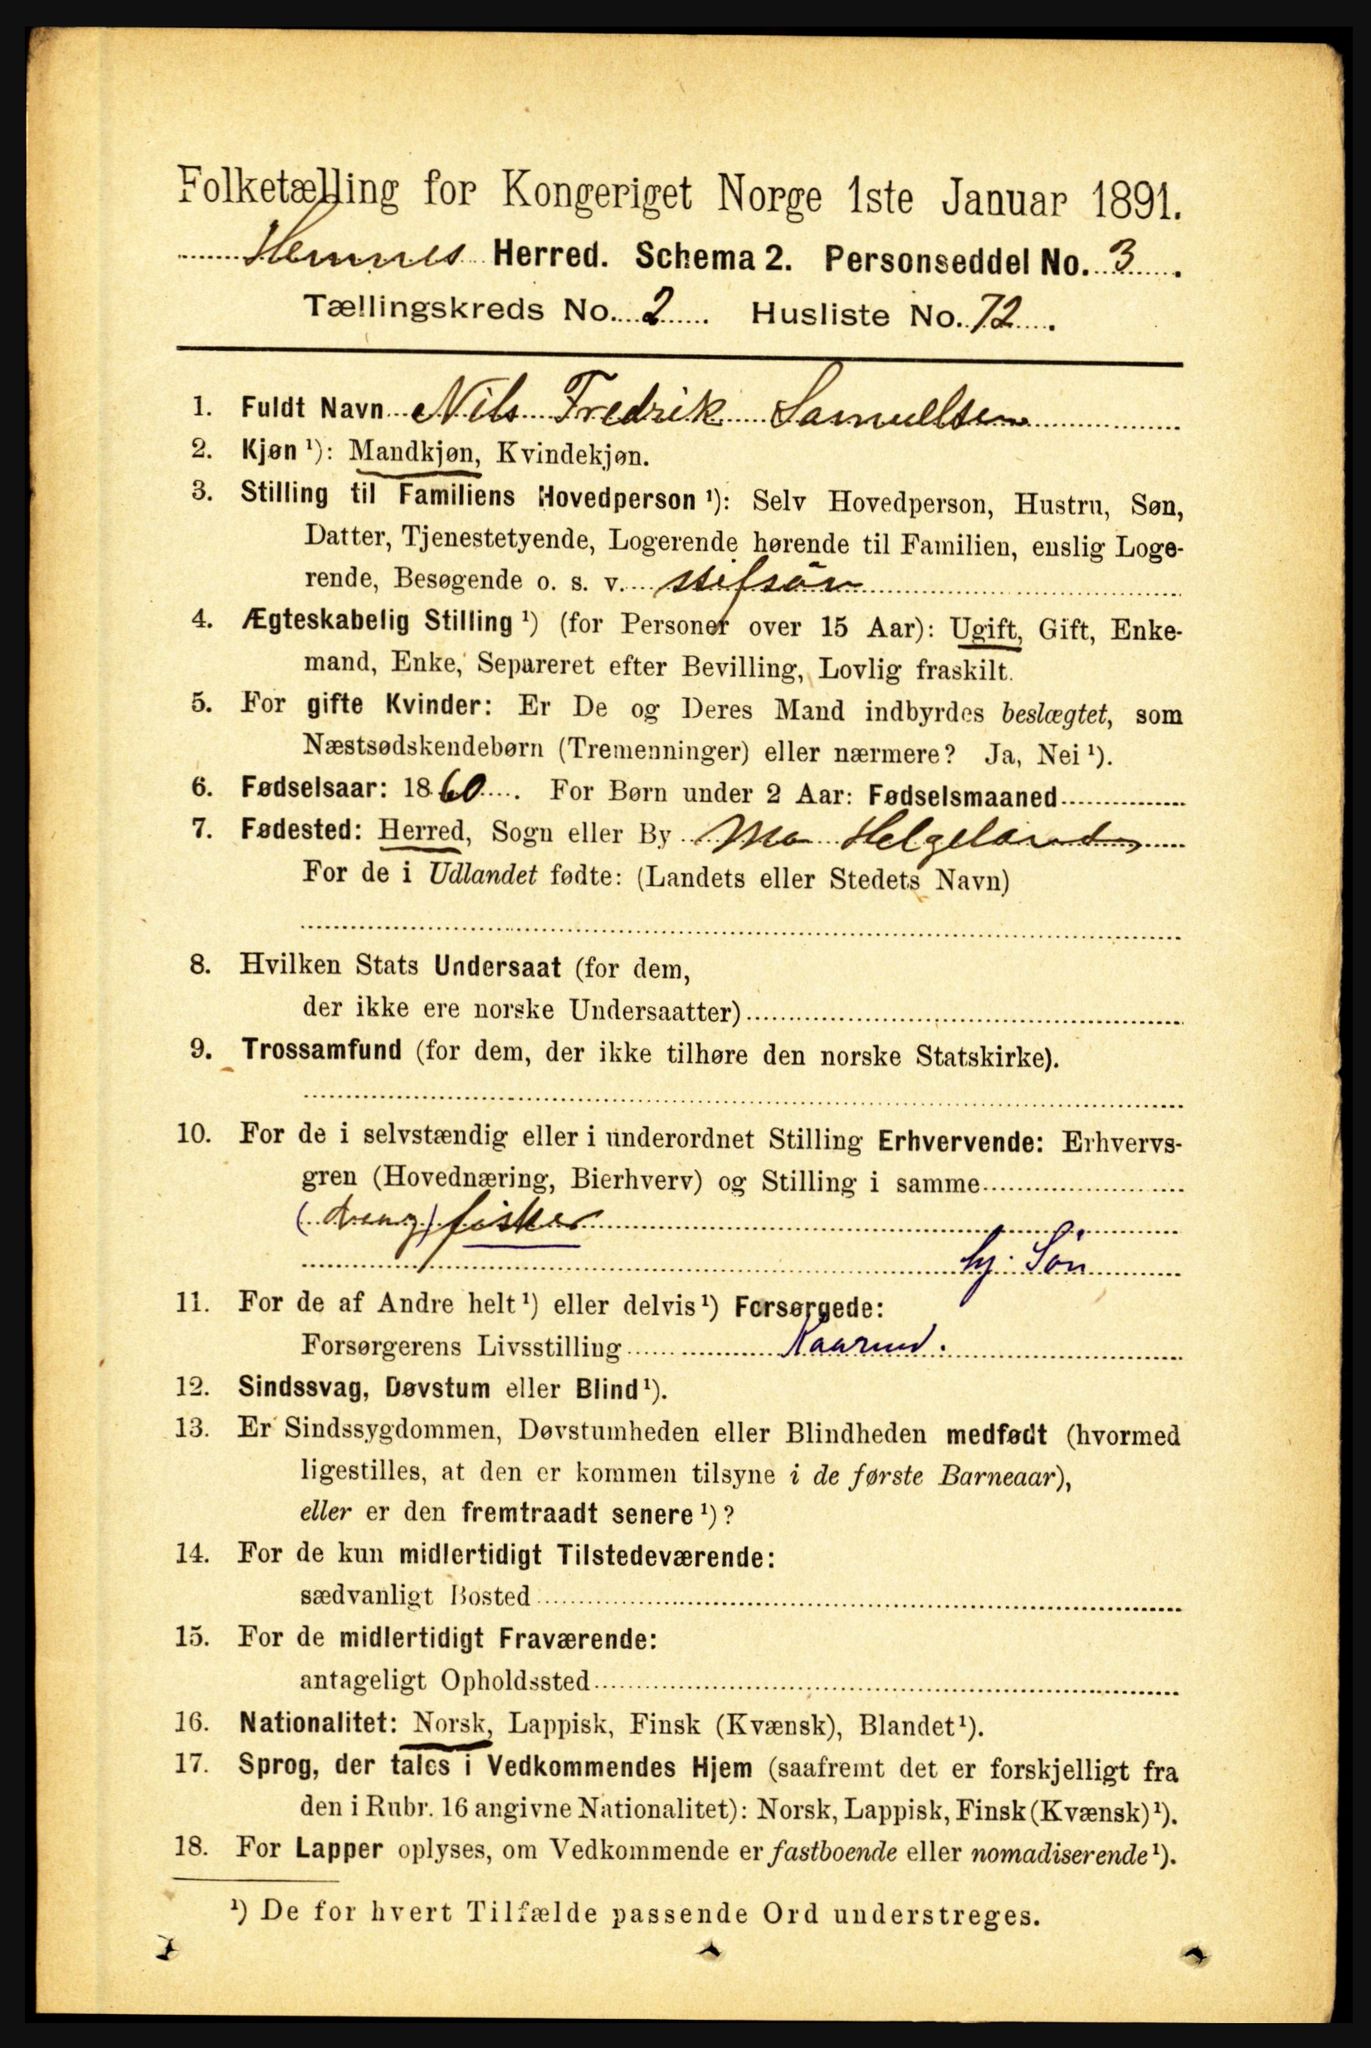 Folketælling for Kongeriget Norge 1ste Januar 1891.
Hemnes Herred. Schema 2. Personseddel No. 3.
Tællingskreds No. 2. Husliste No. 72.
1. Fuldt Navn Nils Fredrik Samuelsen
2. Kjøn ¹): Mandkjøn, Kvindekjøn.
3. Stilling til Familiens Hovedperson ¹): Selv Hovedperson, Hustru, Søn,
Datter, Tjenestetyende, Logerende hørende til Familien, enslig Loge-
rende, Besøgende o. s. v. stifsøn
4. Ægteskabelig Stilling ¹) (for Personer over 15 Aar): Ugift, Gift, Enke-
mand, Enke, Separeret efter Bevilling, Lovlig fraskilt.
5. For gifte Kvinder: Er De og Deres Mand indbyrdes beslægtet, som
Næstsødskendebørn (Tremenninger) eller nærmere? Ja, Nei ¹).
6. Fødselsaar: 1860. For Børn under 2 Aar: Fødselsmaaned
7. Fødested: Herred, Sogn eller By Mo Helgeland
For de i Udlandet fødte: (Landets eller Stedets Navn)
8. Hvilken Stats Undersaat (for dem,
der ikke ere norske Undersaatter)
9. Trossamfund (for dem, der ikke tilhøre den norske Statskirke).
10. For de i selvstændig eller i underordnet Stilling Erhvervende: Erhvervs-
gren (Hovednæring, Bierhverv) og Stilling i samme
(dreng) fisker
hj. Søn
11. For de af Andre helt ¹) eller delvis ¹) Forsørgede:
Forsørgerens Livsstilling
12. Sindssvag, Døvstum eller Blind ¹).
13. Er Sindssygdommen, Døvstumheden eller Blindheden medfødt (hvormed
ligestilles, at den er kommen tilsyne i de første Barneaar),
eller er den fremtraadt senere ¹)?
14. For de kun midlertidigt Tilstedeværende:
sædvanligt Bosted
15. For de midlertidigt Fraværende:
antageligt Opholdssted
16. Nationalitet: Norsk, Lappisk, Finsk (Kvænsk), Blandet ¹).
17. Sprog, der tales i Vedkommendes Hjem (saafremt det er forskjelligt fra
den i Rubr. 16 angivne Nationalitet): Norsk, Lappisk, Finsk (Kvænsk) ¹).
18. For Lapper oplyses, om Vedkommende er fastboende eller nomadiserende ¹).
¹) De for hvert Tilfælde passende Ord understreges.